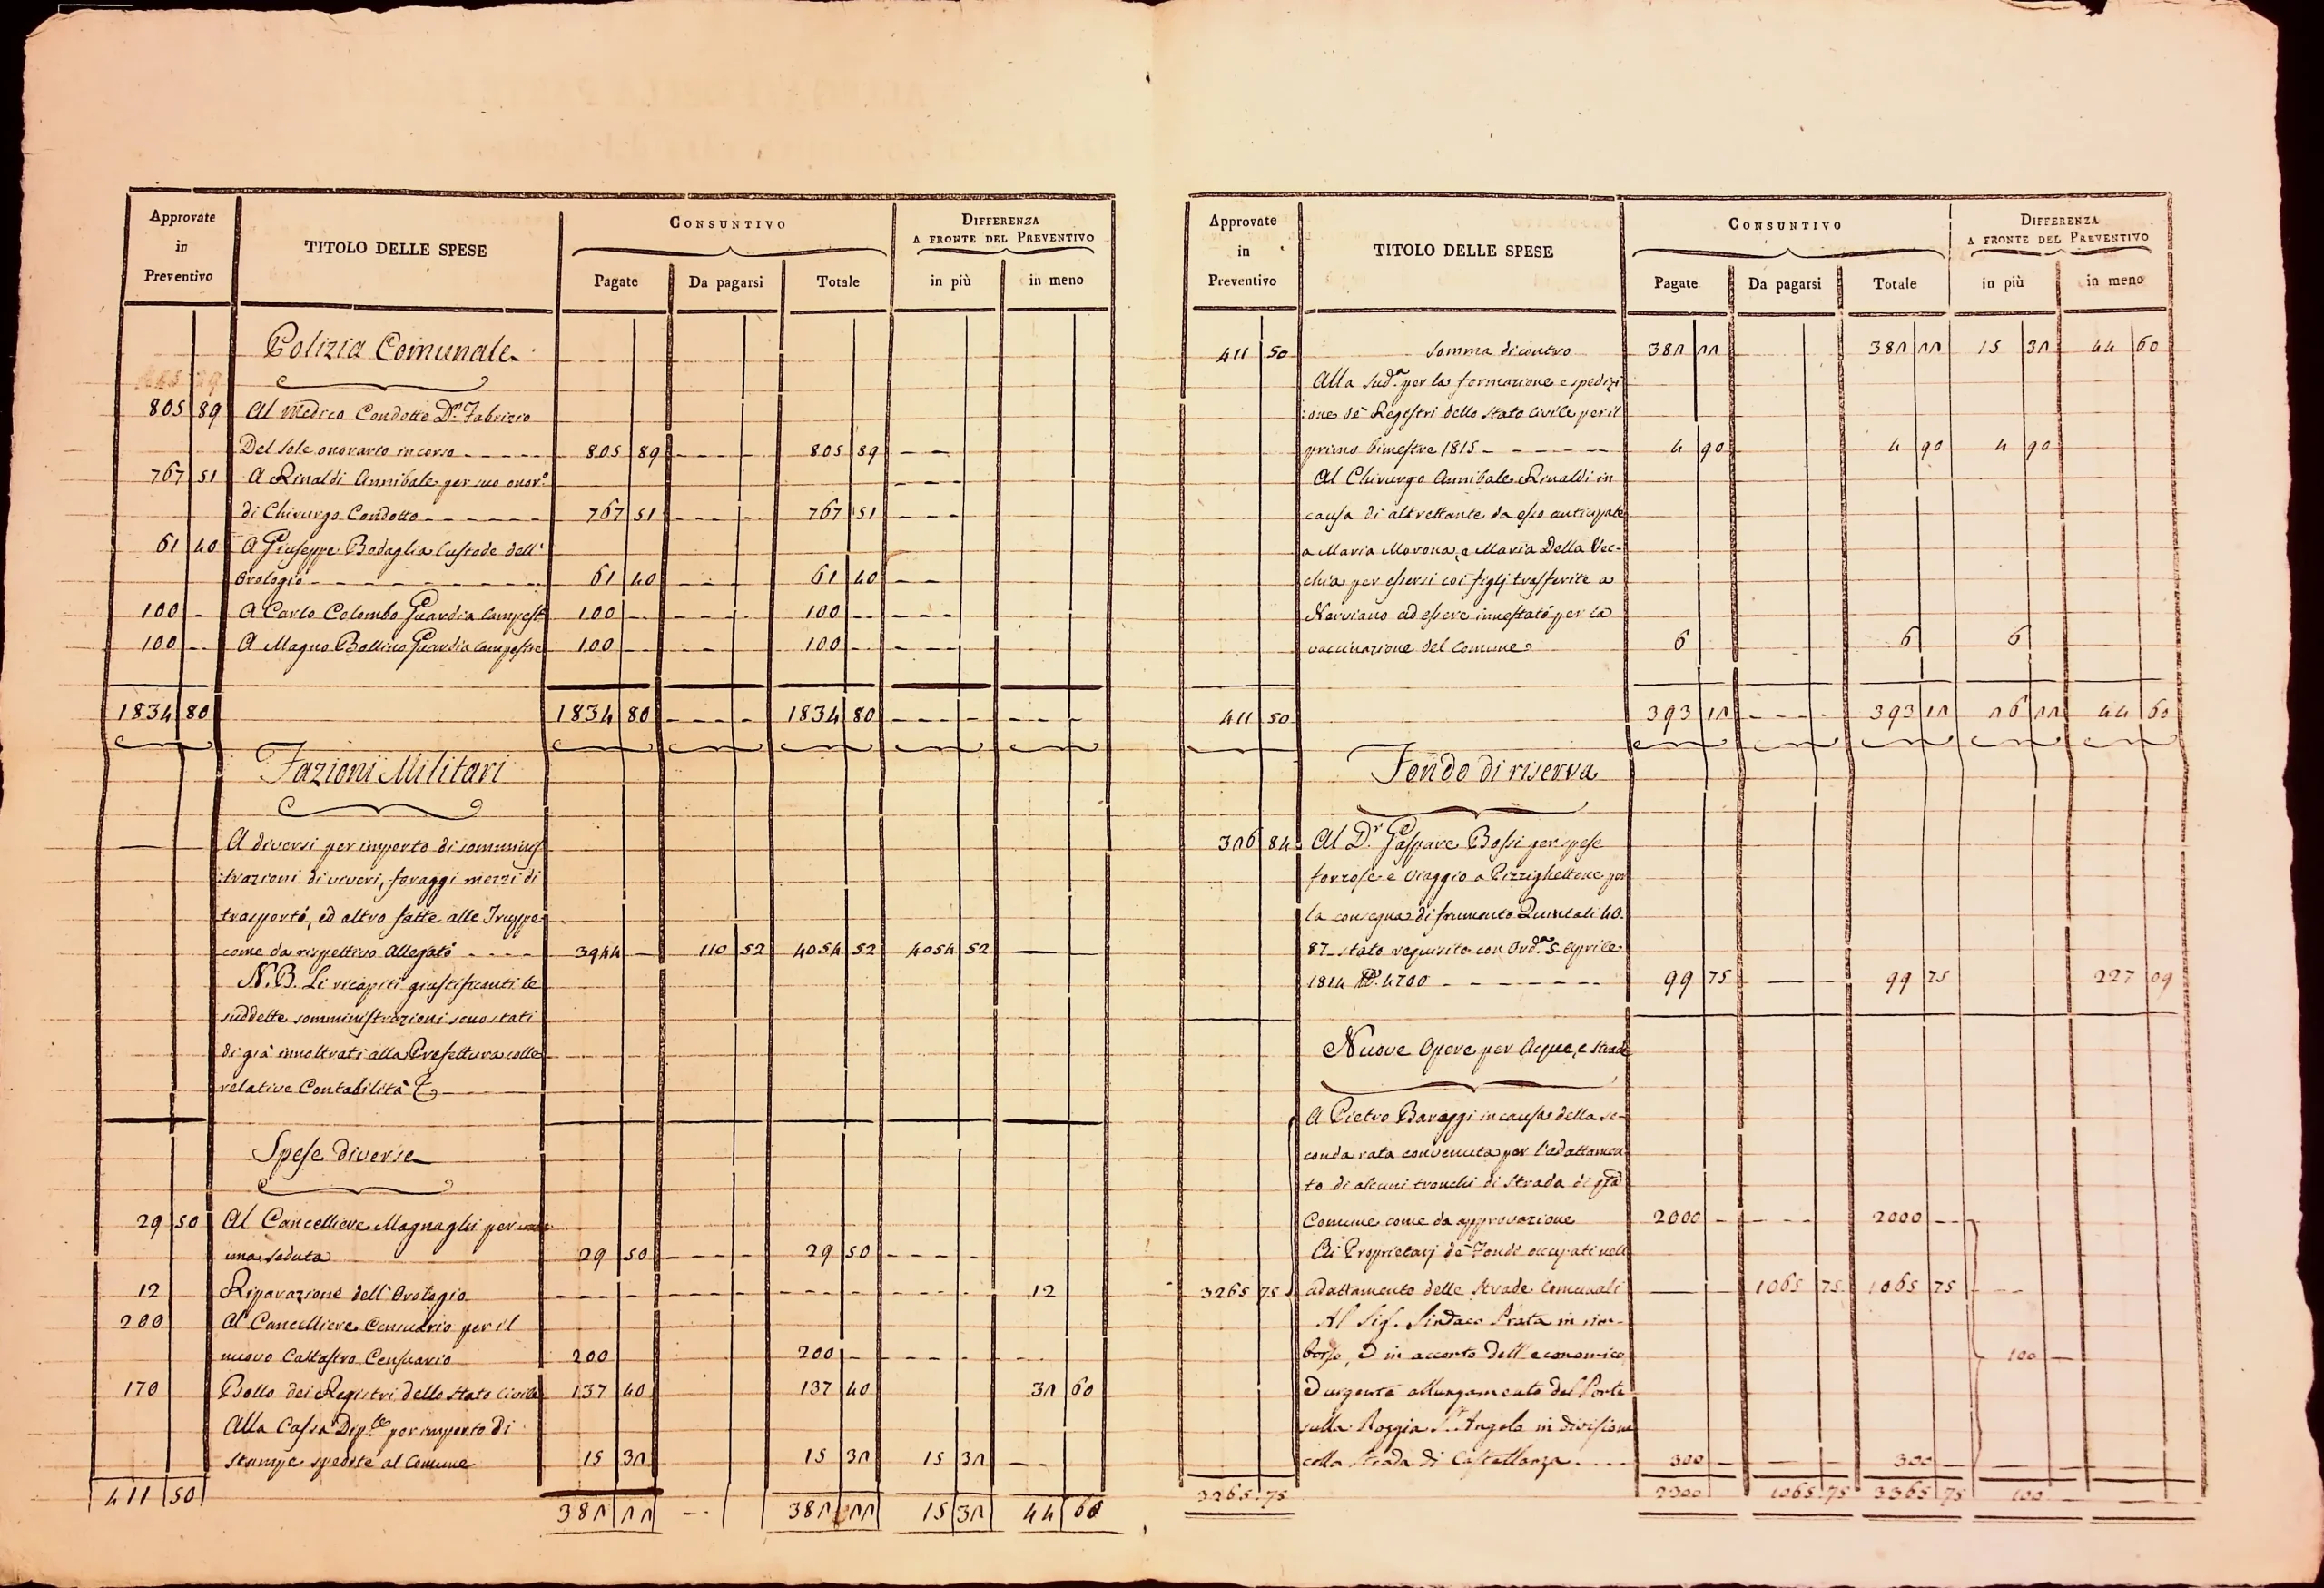 Approvate in Preventivo
TITOLO DELLE SPESE
CONSUNTIVO
Pagate Da pagarsi Totale
DIFFERENZA A FRONTE DEL PREVENTIVO
in più in meno
Polizia Comunale
805 89 Al Medico Condotto D.n Fabrizio
Del Sole onorario in corso 805 89 805 89
767 51 A Rinaldi Annibale per suo onor.o
di Chirurgo Condotto 767 51 767 51
61 40 A Giuseppe Badaglia Custode dell'
Orologio 61 40 61 40
100 - A Carlo Colombo Guardia Campest 100 100
100 - A Magno Bollino Guardia Campestre 100 100
1834 80 1834 80 1834 80
Fazioni Militari
A diversi per importo di sommini=
:strazioni di viveri, foraggi mezzi di
trasporto, ed altro fatte alle Truppe
come da rispettivo Allegato 3944 - 110 52 4054 52 4054 52
N.B. Li ricapiti giustificanti le
suddette somministrazioni sono stati
di già innoltrati alla Prefettura colle
relative Contabilità
Spese diverse
29 50 Al Cancelliere Magnaghi per
una seduta 29 50 29 50
12 Riparazione dell'Orologio 12
200 Al Cancelliere Censuario per il
nuovo Cattastro Censuario 200 200
170 Bollo dei Registri dello Stato Civile 137 40 137 40 32 60
Alla Cassa Dip.le per importo di
stampe spedite al Comune 15 32 15 32 15 32
411 50 382 22 382 22 15 32 44 60
Approvate in Preventivo
TITOLO DELLE SPESE
CONSUNTIVO
Pagate Da pagarsi Totale
DIFFERENZA A FRONTE DEL PREVENTIVO
in più in meno
411 50 Somma di contro 382 22 382 22 15 32 44 60
Alla Sud.a per la formazione e spedizi
:one de' Registri dello Stato Civile per il
primo bimestre 1815 4 90 4 90 4 90
Al Chirurgo Annibale Rinaldi in
causa di altrettante da esso anticipate
a Maria Morona, e Maria Della Vec-
chia per essersi coi figlj trasferite a
Nerviano ad essere innestato per la
vaccinazione del Comune 6 6 6
411 50 393 12 393 12 26 22 44 60
Fondo di riserva
326 84 Al D.r Gaspare Bossi per spese
forzose e viaggio a Pizzighettone per
la consegna di frumento Quintali 40.
87 stato requisito con Ord.a 5 Aprile
1814 N.º 4700 99 75 99 75 227 09
Nuove Opere per Acque, e Strade
A Pietro Baraggi in causa della se-
conda rata convenuta per l'adattamen
to di alcuni tronchi di Strada di q.to
Comune come da approvazione 2000 2000
Ai Proprietarj de' Fondi occupati nell
3265 75 adattamento delle Strade Comunali 1065 75 1065 75
Al Sig. Sindaco Prata in rim-
borso, ed in acconto dell'economico 100
ed urgente allungamento del Ponte
sulla Roggia S. Angelo in divisione
colla Strada di Castellanza 300 300
3265 75 2300 1065 75 3365 75 100